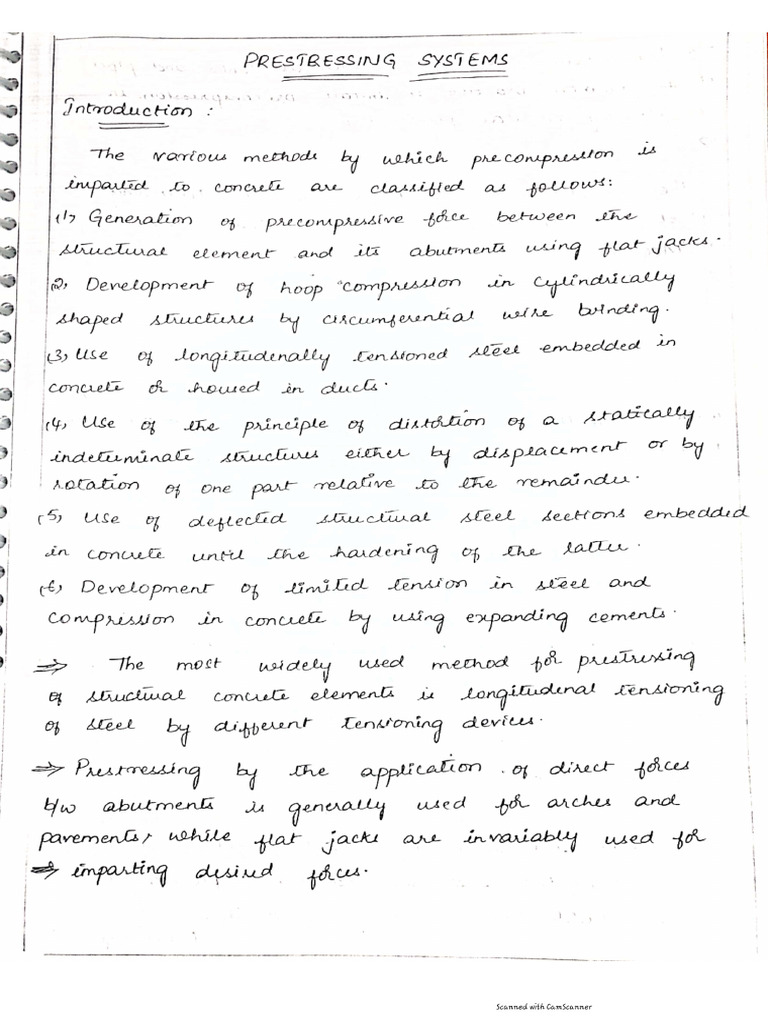 PRESTRESSING SYSTEMS
Introduction :
The various methods by which precompression is
imparted to concrete are classified as follows:
(1) Generation of precompressive force between the
structural element and its abutments using flat jacks.
(2) Development of hoop compression in cylindrically
shaped structures by circumferential wire binding.
(3) Use of longitudenally tensioned steel embedded in
concrete or housed in ducts.
(4) Use of the principle of distortion of a statically
indeterminate structures either by displacement or by
rotation of one part relative to the remainder.
(5) Use of deflected structural steel sections embedded
in concrete until the hardening of the latter.
(6) Development of limited tension in steel and
compression in concrete by using expanding cements.
⇒ The most widely used method for prestressing
of structural concrete elements is longitudenal tensioning
of steel by different tensioning devices.
⇒ Prestressing by the application of direct forces
b/w abutments is generally used for arches and
pavements, while flat jacks are invariably used for
⇒ imparting desired forces.
Scanned with CamScanner